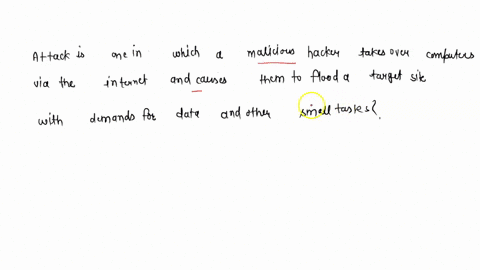 Attack is one in which a malicious hacker takes over computers
via the internet and causes them to flood a target site
with demands for data and other small tasks?